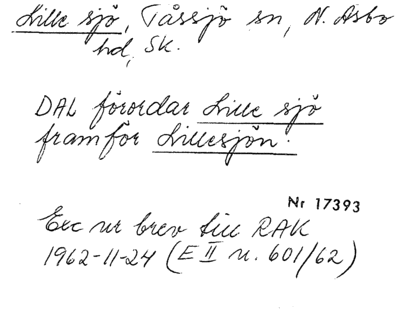 Lille sjö, Tåssjö sn, N. Åsbo
hd, Sk.
DAL förordar Lille sjö
framför Lillesjön.
Nr 17393
Exc ur brev till RAK
1962-11-24 (E II u. 601/62)